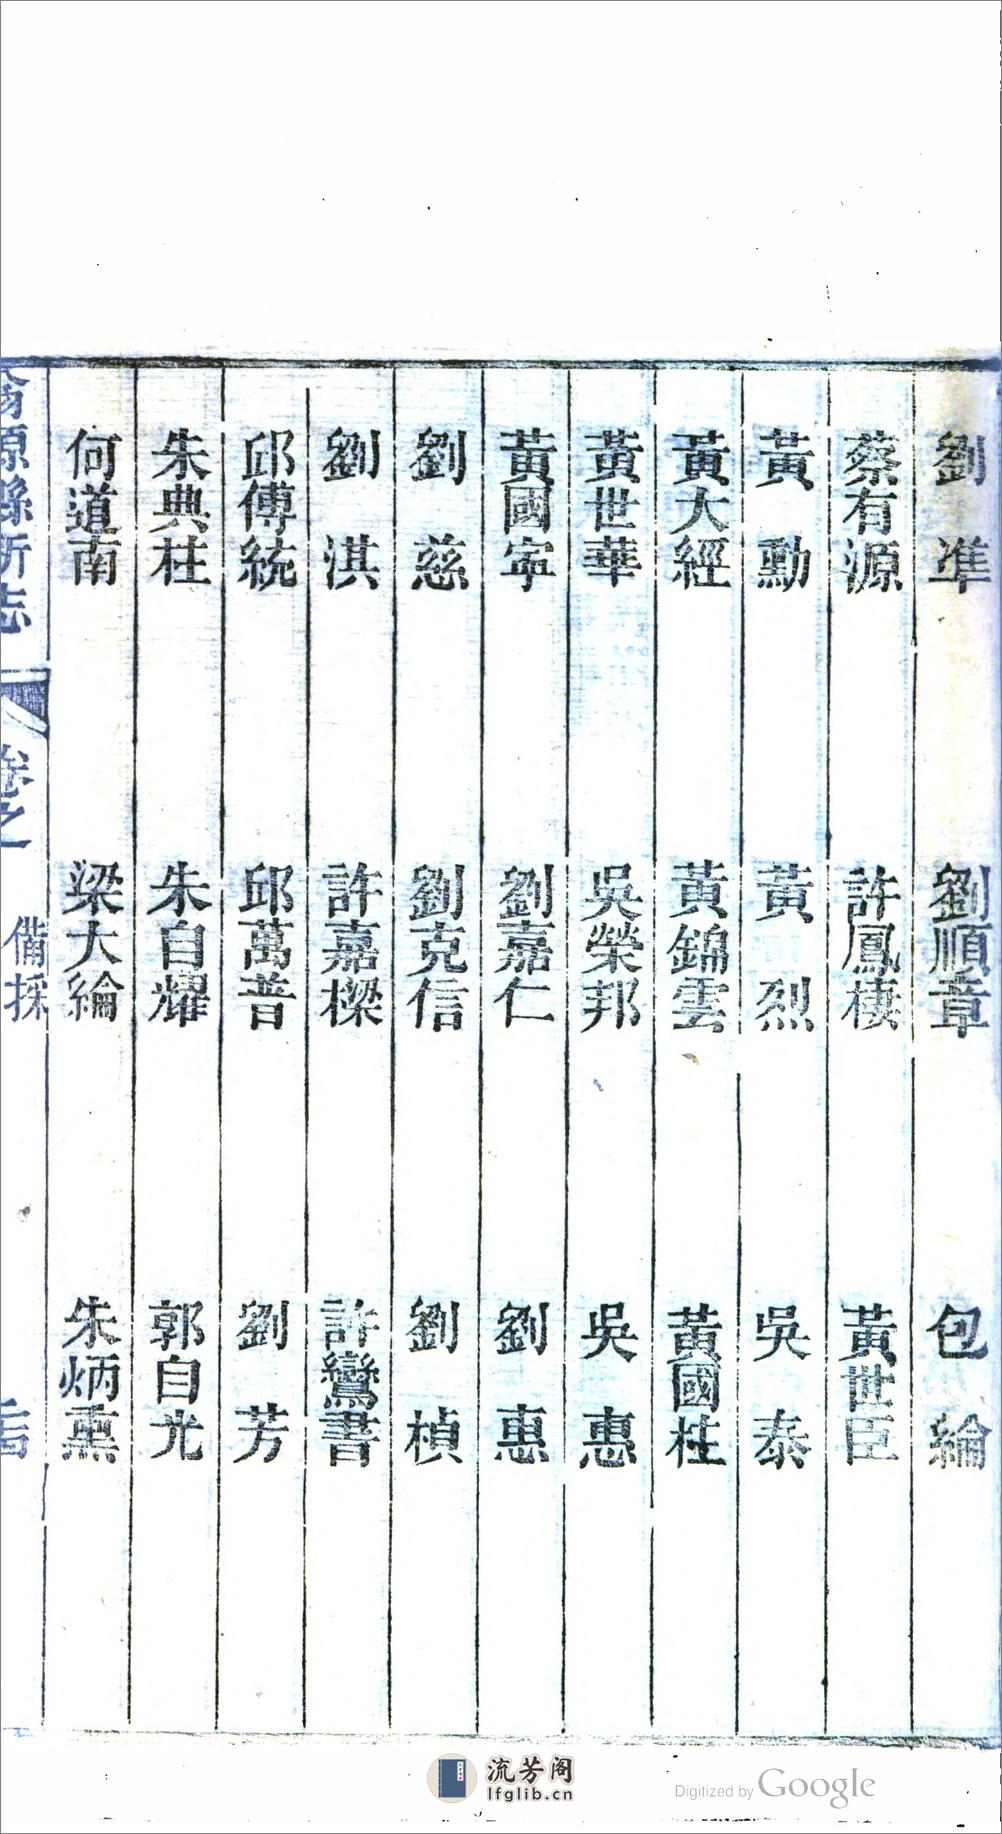 劉準 劉順章 包綸
蔡有源 許鳳棲 黃世臣
黃勳 黃烈 吳泰
黃大經 黃錦雲 黃國柱
黃世華 吳榮邦 吳惠
黃國寕 劉嘉仁 劉惠
劉慈 劉克信 劉楨
劉淇 許嘉樑 許鸞書
邱傅統 邱萬普 劉芳
朱典柱 朱自耀 郭自光
何道南 梁大綸 朱炳熏
翁源縣新志 卷之 備採
流芳阁
lfglib.cn
Digitized by Google